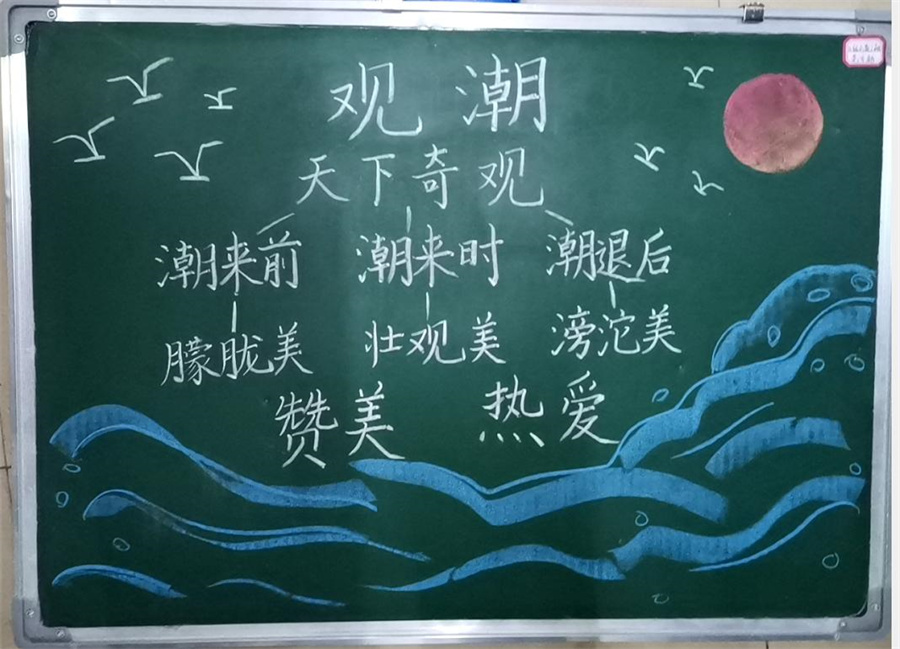 观潮
天下奇观
潮来前 潮来时 潮退后
朦胧美 壮观美 滂沱美
赞美 热爱